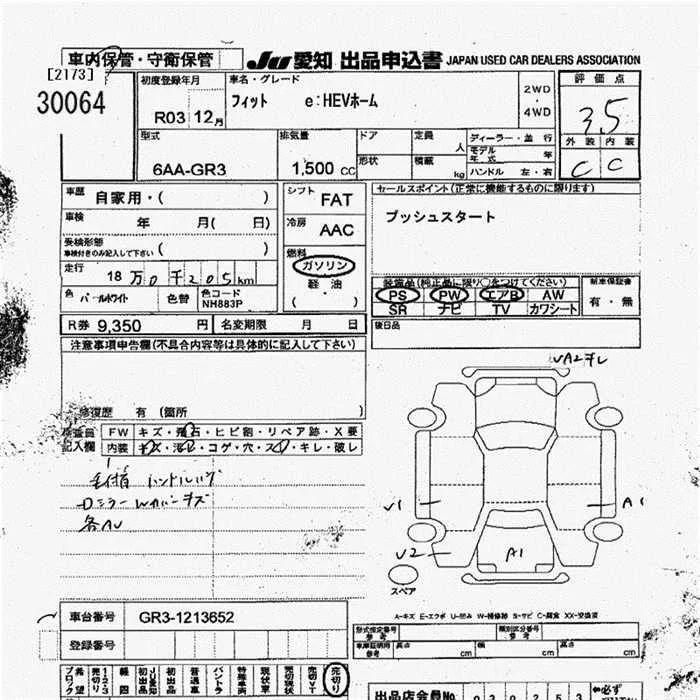 車内保管・守衛保管
Ju 愛知 出品申込書 JAPAN USED CAR DEALERS ASSOCIATION
[2173]
30064
初度登録年月
R03 12月
車名・グレード
フィット e:HEVホーム
2WD
・
4WD
評価点
3.5
外装 内装
C C
型式
6AA-GR3
排気量
1,500 CC
ドア
形状
定員 人
積載 kg
ディーラー・並行
モデル年式 年
ハンドル 左・右
車歴 自家用・( )
車検 年 月( 日)
受検形態
車検付きのみ記入して下さい ( )
走行 18万0千205km
色 パールホワイト 色替 色コード NH883P
シフト FAT
冷房 AAC
燃料
ガソリン
軽油
( ・ )
セールスポイント(正常に機能するものに限ります)
プッシュスタート
装備品(純正品に限り○をつけてください)
PS PW エアB AW
SR ナビ TV カワシート
新車保証書
有・無
R券 9,350 円 名変期限 月 日
後日品
注意事項申告欄(不具合内容等は具体的に記入して下さい)
修復歴 有 (箇所 )
検査員
記入欄
FW キズ・飛石・ヒビ割・リペア跡・X要
内装 キズ・汚レ・コゲ・穴・スレ・キレ・破レ
Dミラー Wカバーキズ
各AU
A1
A1
U2
スペア
A-キズ E-エクボ U-凹み W-補修跡 S-サビ C-腐食 XX-交換済
車台番号 GR3-1213652
登録番号
形式指定番号
参考
類別区分番号
参考
車庫証明用
参考
長さ cm 幅 cm 高さ cm
売切り
出品店会員No.